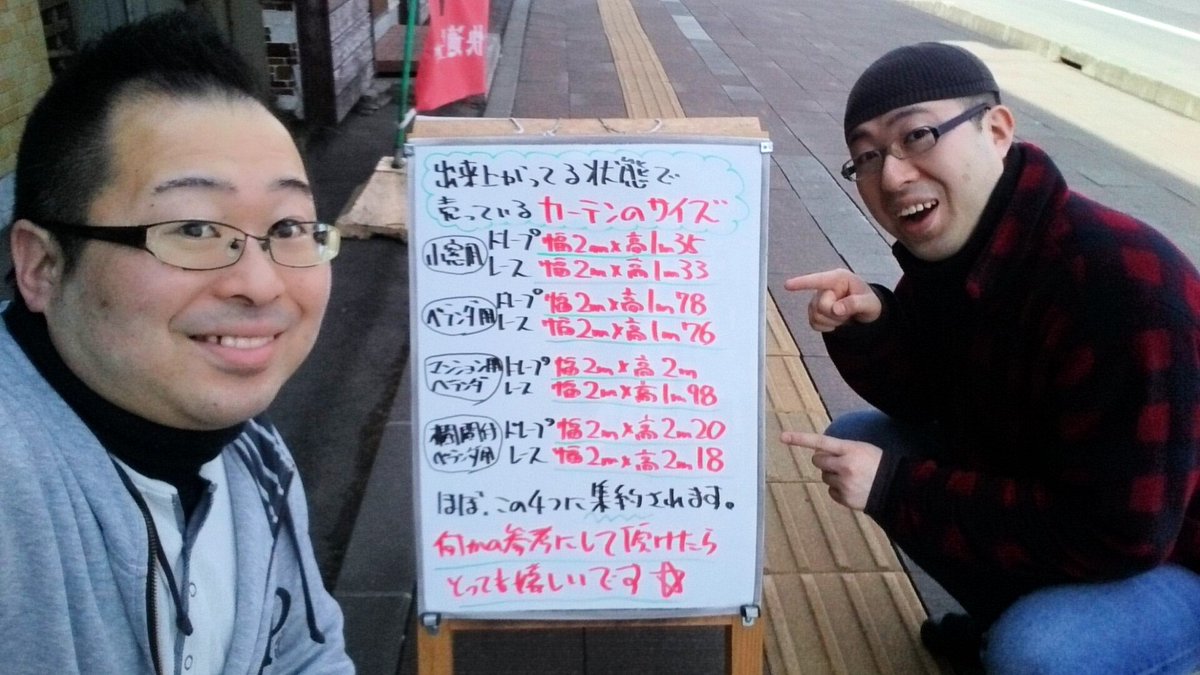 快適
出来上がってる状態で
売っているカーテンのサイズ
小窓用 ドレープ 幅2m×高1m35
レース 幅2m×高1m33
ベランダ用 ドレープ 幅2m×高1m78
レース 幅2m×高1m76
マンション用 ベランダ ドレープ 幅2m×高2m
レース 幅2m×高1m98
欄間付 ベランダ用 ドレープ 幅2m×高2m20
レース 幅2m×高2m18
ほぼ、この4つに集約されます。
何かの参考にして頂けたら
とっても嬉しいです☆